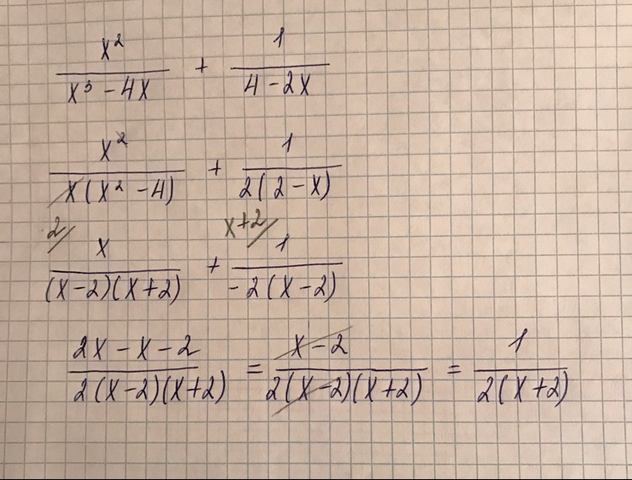 x²/(x³ - 4x) + 1/(4 - 2x)
x²/(x(x² - 4)) + 1/(2(2 - x))
2/ x/((x-2)(x+2)) + x+2/ 1/(-2(x-2))
(2x - x - 2)/(2(x-2)(x+2)) = (x-2)/(2(x-2)(x+2)) = 1/(2(x+2))